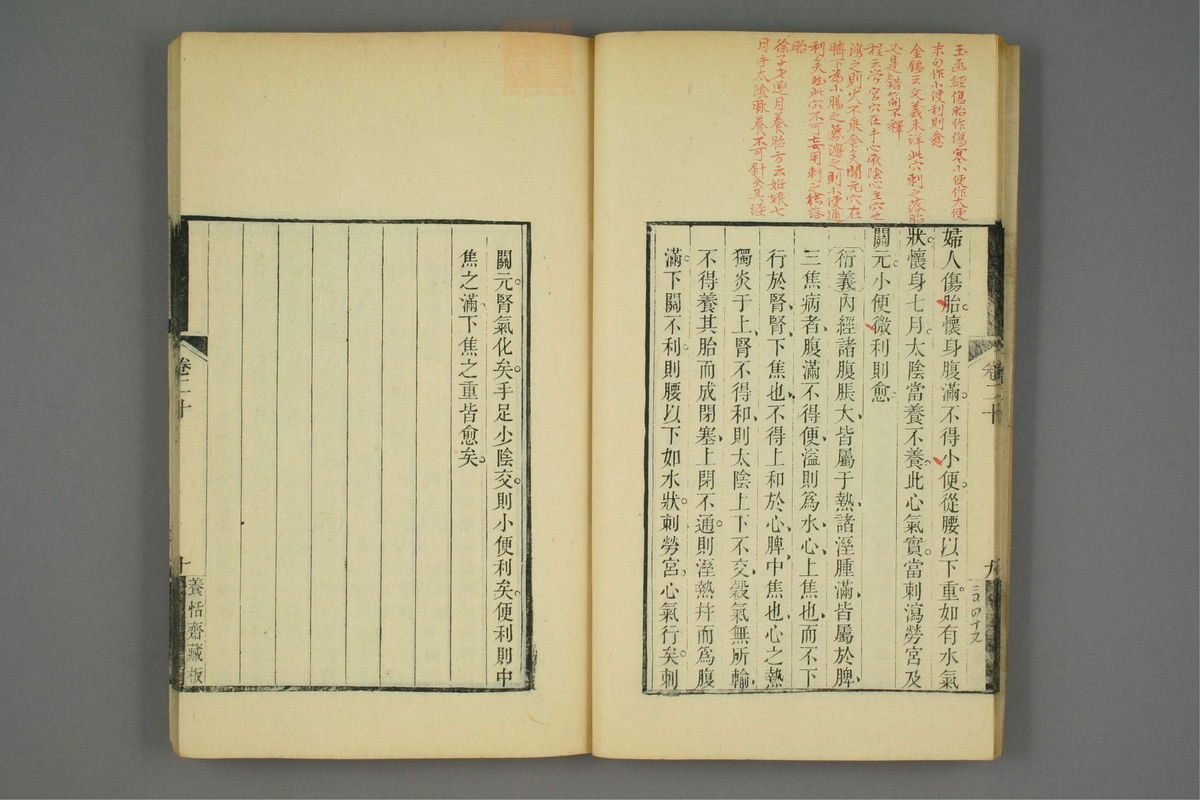 玉函經傷胎作傷寒小便作大便
末句作小便利則愈
金鑑云文義未詳此穴刺之落胎
必是錯簡不釋
程云勞宮穴在手心厥陰心主穴也
瀉之則火不乘金矣關元穴在
臍下為小腸之募瀉之則小便通
利矣此穴不可妄用刺之能落
胎
徐子才逐月養胎方云妊娠七
月手太陰脈養不可針灸其經
婦人傷胎懷身腹滿不得小便從腰以下重如有水氣
狀懷身七月太陰當養不養此心氣實當刺瀉勞宮及
關元小便微利則愈
衍義內經諸腹脹大皆屬于熱諸溼腫滿皆屬於脾
三焦病者腹滿不得便溢則爲水心上焦也而不下
行於腎腎下焦也不得上和於心脾中焦也心之熱
獨炎于上腎不得和則太陰上下不交穀氣無所輸
不得養其胎而成閉塞上閉不通則溼熱幷而爲腹
滿下關不利則腰以下如水狀刺勞宮心氣行矣刺
卷二十
九
關元腎氣化矣手足少陰交則小便利矣便利則中
焦之滿下焦之重皆愈矣
卷二十
十
養恬齋藏板